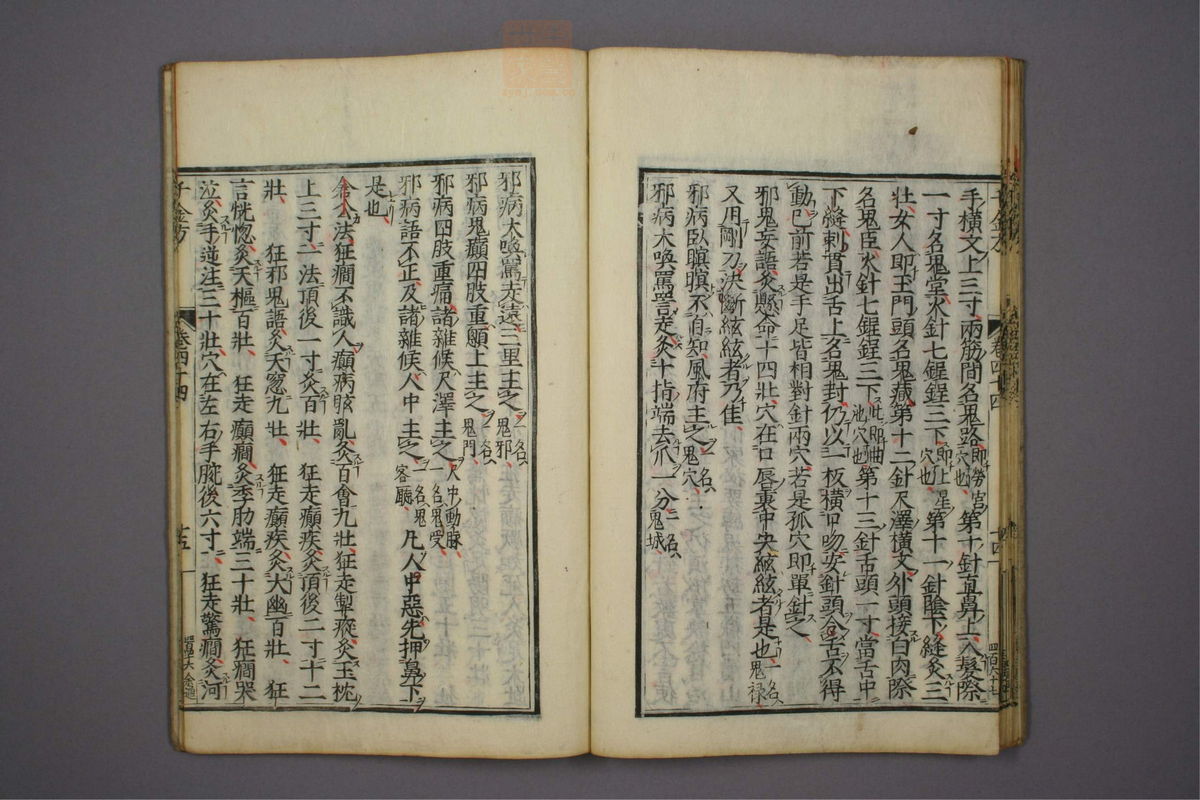 手橫文上三寸兩筋間名鬼路即勞宮穴也第十針直鼻上入髮際
一寸名鬼堂火針七鋥鋥三下即上星穴也第十一針陰下縫灸三
壯女人即玉門頭名鬼藏第十二針尺澤橫文外頭接白肉際
名鬼臣火針七鋥鋥三下此即曲池穴也第十三針舌頭一寸當舌中
下縫刺貫出舌上名鬼封仍以一板橫口吻安針頭令舌不得
動已前若是手足皆相對針兩穴若是孤穴即單針之
邪鬼妄語灸懸命十四壯穴在口唇裏中央絃絃者是也一名鬼祿
又用剛刀決斷絃絃者乃佳
邪病臥瞑瞑不自知風府主之一名鬼穴
邪病大喚罵詈走灸十指端去爪一分一名鬼城
邪病大喚罵走遠三里主之一名鬼邪
邪病鬼癲四肢重顖上主之一名鬼門
邪病四肢重痛諸雜候尺澤主之人中動脉一名鬼受
邪病語不正及諸雜候人中主之一名鬼客廳凡人中惡先押鼻下
是也
倉公法狂癇不識人癲病眩亂灸百會九壯狂走掣瘲灸玉枕
上三寸一法頂後一寸灸百壯 狂走癲疾灸頂後二寸十二
壯 狂邪鬼語灸天窻九壯 狂走癲疾灸大幽百壯 狂
言恍惚灸天樞百壯 狂走癲癇灸季肋端三十壯 狂癇哭
泣灸手逆注三十壯穴在左右手腕後六寸 狂走驚癇灸河
千金方
卷四十四
十五
卷四十四
十四
四百六十七